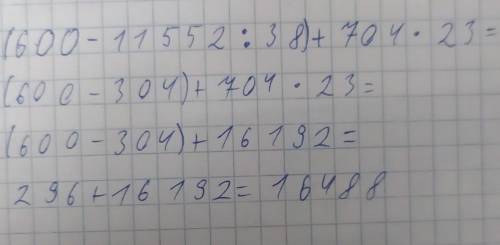 (600-11552:38)+704·23=
(600-304)+704·23=
(600-304)+16192=
296+16192=16488